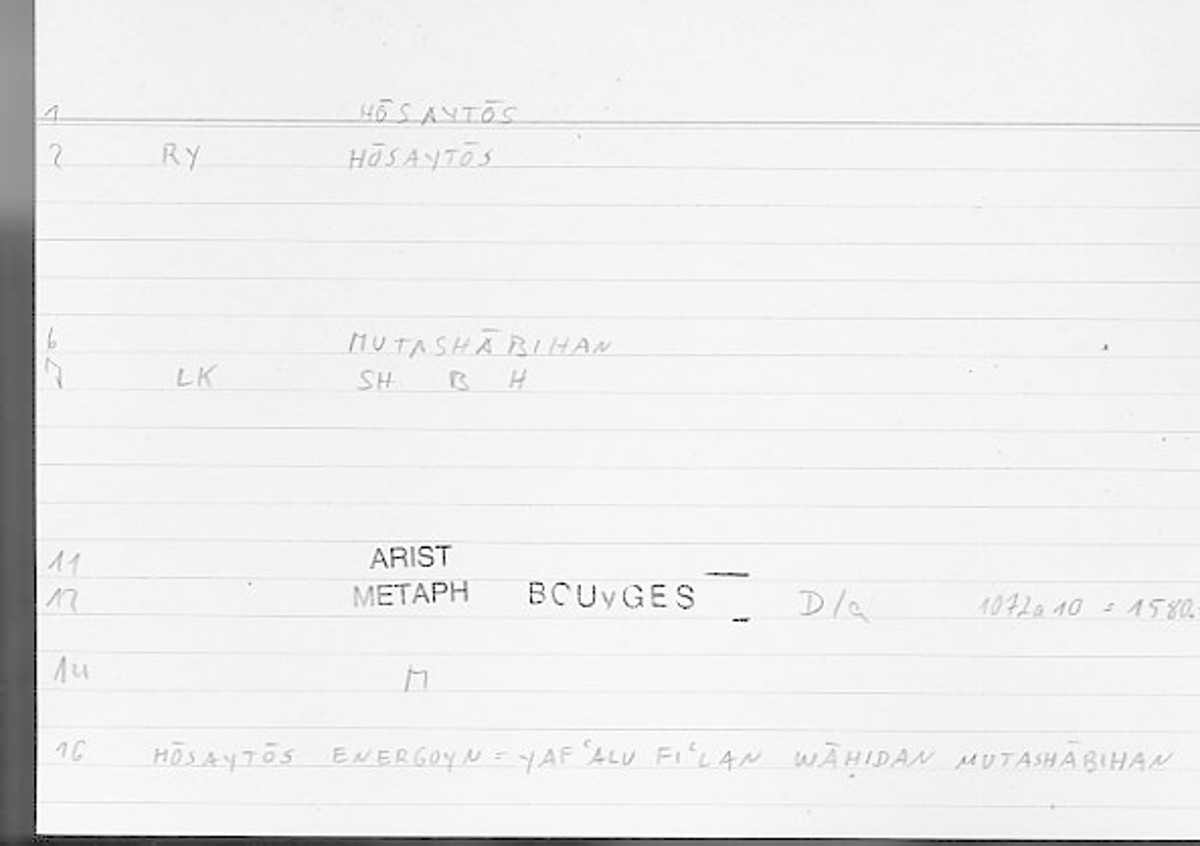 1 HŌSAYTŌS
2 RY HŌSAYTŌS
6 MUTASHĀBIHAN
7 LK SH B H
11 ARIST
12 METAPH BOUyGES D/a 1072a10 = 1580.
14 M
16 HŌSAYTŌS ENERGOYN = YAFʿALU FIʿLAN WĀḤIDAN MUTASHĀBIHAN